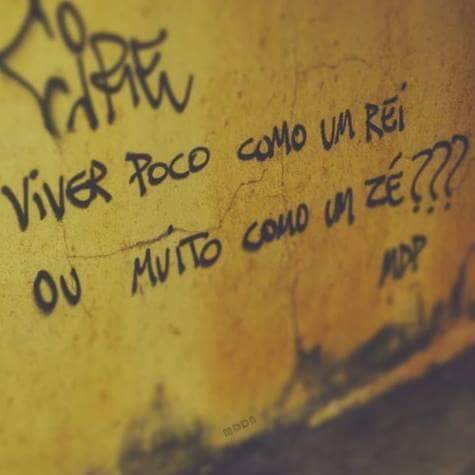 VIVER POCO COMO UM REI
OU MUITO COMO UM ZÉ???
MDP